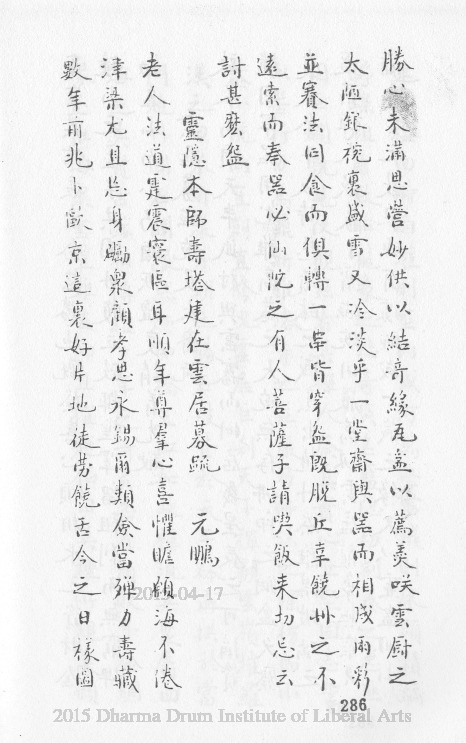 勝心未滿思營妙供以結奇緣瓦盋以薦羹咲雲厨之
太陋銀椀裏盛雪又冷淡乎一堂齋與器而相成兩彩
並賽法同食而俱轉一串皆穿盋既脫丘幸饒州之不
遠索而奉器必仙院之有人菩薩子請喫飯来切忌云
討甚麽盋
靈隱本師壽塔建在雲居募疏 元鵬
老人法道霆震寰區耳順年尊羣心喜懼瞻頤海不倦
津梁尤且忘身勵衆顧孝思永錫爾類僉當殫力壽藏
數年前兆卜歙京這裏好片地徒勞饒舌今之日樣圖
286
2015-04-17
2015 Dharma Drum Institute of Liberal Arts